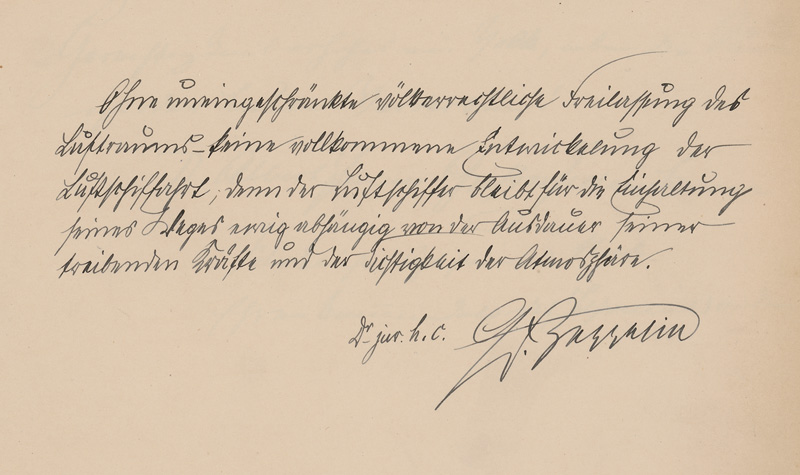 Ohne uneingeschränkte völkerrechtliche Freilassung des
Luftraums – keine vollkommene Entwickelung der
Luftschiffahrt, denn der Luftschiffer bleibt für die Einhaltung
seines Weges ewig abhängig von der Ausdauer seiner
treibenden Kräfte und der der Atmosphäre.
Dr. jur. h. c. Gf. Zeppelin